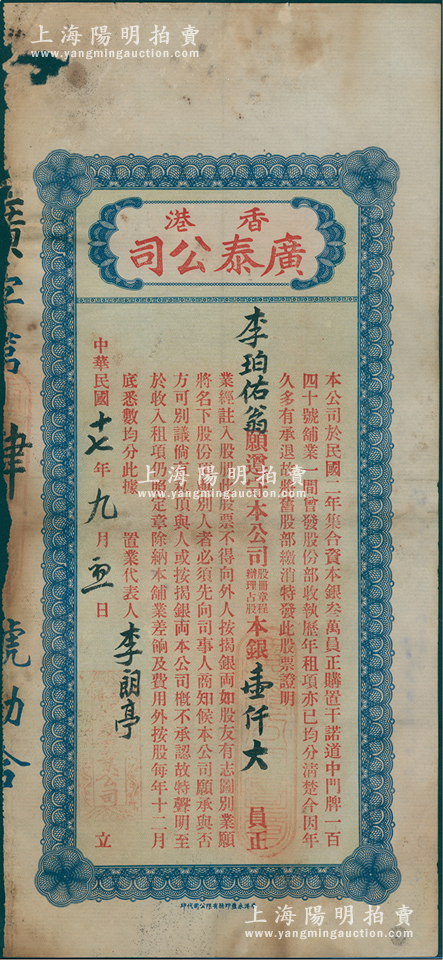 上海陽明拍賣
www.yangmingauction.com
香港
廣泰公司
本公司於民國二年集合資本銀叁萬員正購置干諾道中門牌一百
四十號舖業一間曾發股份部收執歷年租項亦已均分清楚今因年
久多有承退故將舊股部繳消特發此股票證明
李珀佑翁願遵守本公司股閤章程辦理占股本銀壹仟大員正
業經註入股部此股票不得向外人按揭銀両如股友有志圖別業願
將名下股份讓頂別人者必須先向司事人商知候本公司願承與否
方可別議倘私自頂與人或按揭銀両本公司概不承認故特聲明至
於收入租項仍照定章除納本舖業差餉及費用外按股每年十二月
底悉數均分此據 置業代表人 李朗亭
中華民國十七年九月 日 立
廣字第肆號勷合
香港永盛印務有限公司代印
上海陽明拍賣
www.yangmingauction.com
上海陽明拍賣
www.yangmingauction.com